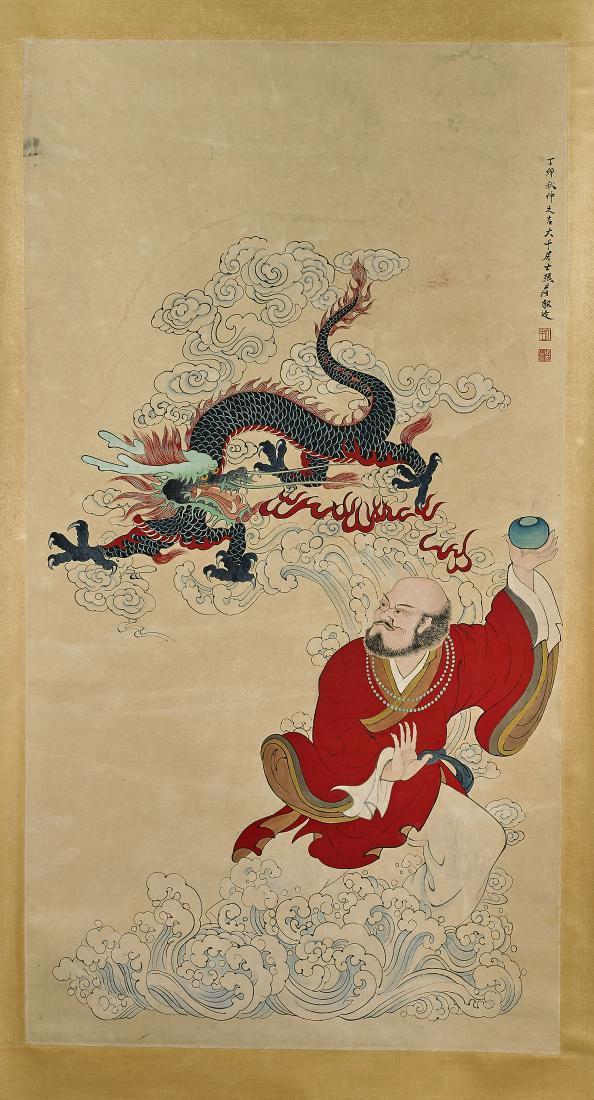 丁卯秋仲之吉大千居士張爰敬造